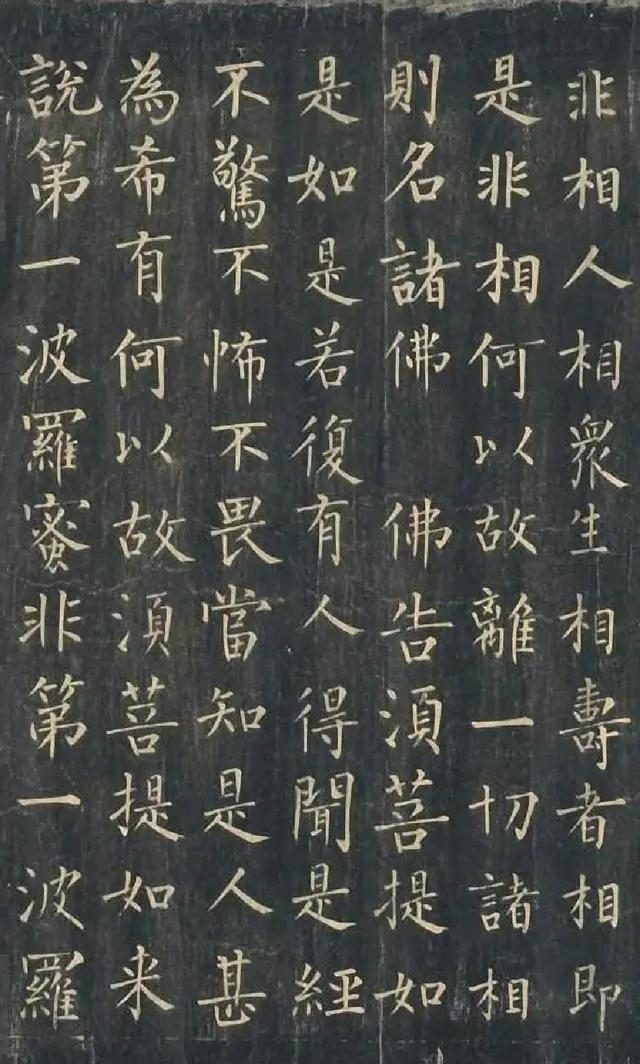 非相人相衆生相壽者相即
是非相何以故離一切諸相
則名諸佛 佛告須菩提如
是如是若復有人得聞是經
不驚不怖不畏當知是人甚
為希有何以故須菩提如来
說第一波羅蜜非第一波羅